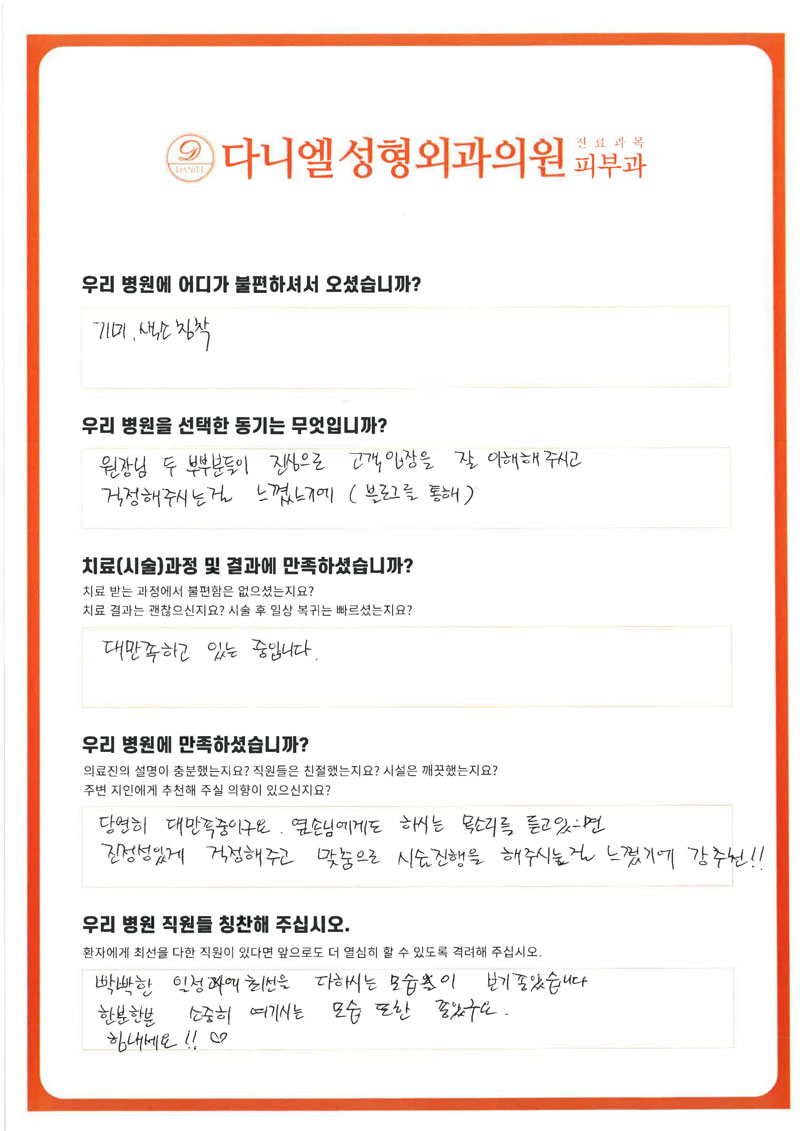 DANIEL
다니엘성형외과의원 진료과목 피부과
우리 병원에 어디가 불편하셔서 오셨습니까?
기미, 색소침착
우리 병원을 선택한 동기는 무엇입니까?
원장님 두 부부분들이 진심으로 고객입장을 잘 이해해주시고
걱정해주시는걸 느꼈느기에 (블로그를 통해)
치료(시술)과정 및 결과에 만족하셨습니까?
치료 받는 과정에서 불편함은 없으셨는지요?
치료 결과는 괜찮으신지요? 시술 후 일상 복귀는 빠르셨는지요?
대만족하고 있는 중입니다.
우리 병원에 만족하셨습니까?
의료진의 설명이 충분했는지요? 직원들은 친절했는지요? 시설은 깨끗했는지요?
주변 지인에게 추천해 주실 의향이 있으신지요?
당연히 대만족중이구요. 옆손님에게도 하시는 목소리를 듣고있으면
진정성있게 걱정해주고 맞춤으로 시술진행을 해주시는걸 느꼈기에 강추천!!
우리 병원 직원들 칭찬해 주십시오.
환자에게 최선을 다한 직원이 있다면 앞으로도 더 열심히 할 수 있도록 격려해 주십시오.
빡빡한 일정 최선을 다하시는 모습이 보기좋았습니다
한분한분 소중히 여기시는 모습 또한 좋았구요.
힘내세요!! ♡